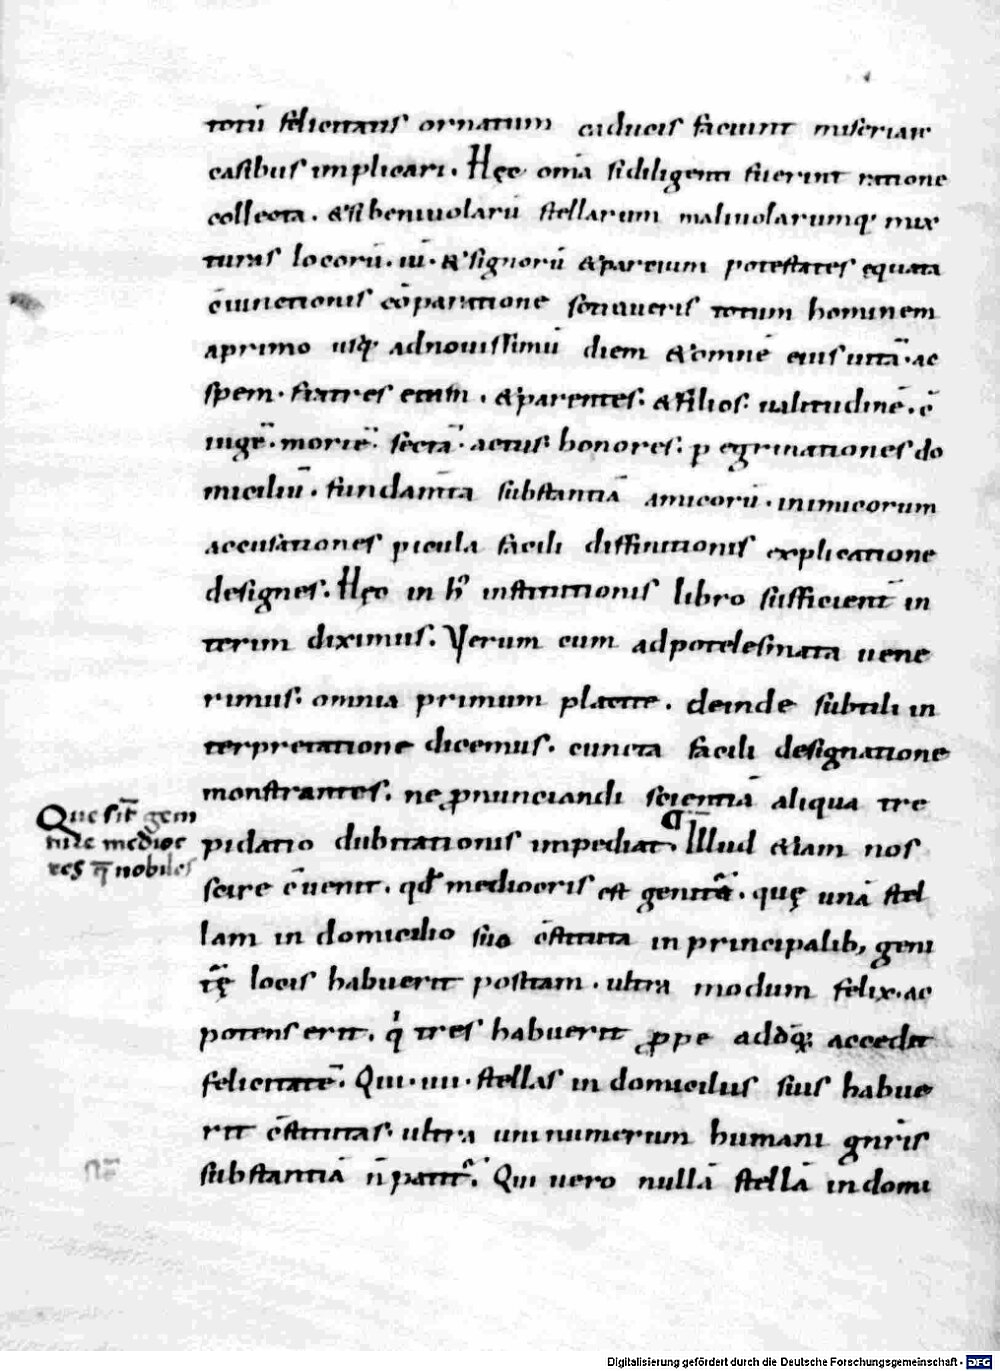 totū felicitatis ornatum caducis faciunt miseriarū
casibus implicari. Hęc omīa si diligenti fuerint ratione
collecta. & si beniuolarū stellarum maliuolarumq; mix
turas locorū. iii. & signorū & partium potestates ęquata
c̄iunctionis cōparatione sotiaueris totum hominem
a primo usq; ad nouissimū diem & omnē eius uitā. ac
spem. fratres etiam. & parentes. & filios. ualitudinē. c̄
iugē. mortē. sectā. actus. honores. pegrinationes do
miciliū. fundam̄ta substantiā amicorū. inimicorum
accusationes picula facili diffinitionis explicatione
designes. Hęc in h̊ institutionis libro sufficient̄ in
terim diximus. Verum cum ad potelesmata uene
rimus. omnia primum placite. deinde subtili in
terpretatione dicemus. cuncta facili designatione
monstrantes. ne pronunciandi scientiā aliqua tre
pidatio dubitationis impediat. Illud etiam nos
Que sīt gem
ture medioc
res q̄ nobiles
scire c̄uenit. qd̄ mediocris est genitā. quę unā stel
lam in domicilio suo c̄stituta in principalib; geni
tę̄ locis habuerit positam. ultra modum felix. ac
potens erit. q̇ tres habuerit prope ad dōq; accedit
felicitatē. Qui. iiii. stellas in domiciliis suis habue
rit c̄stitutas. ultra uminumerum humani gn̄ris
substantiā n̄ patit̄. Qui uero nullā stellā in domi
Digitalisierung gefördert durch die Deutsche Forschungsgemeinschaft - DFG